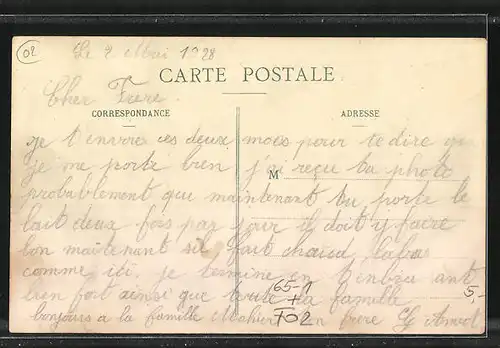 02
Le 2 Mai 1928
CARTE POSTALE
Cher Frere.
CORRESPONDANCE
ADRESSE
je t'envoie ces deux mots pour te dire que
je me porte bien j'ai reçu ta photo
M
probablement que maintenant tu porte le
lait deux fois par jour il doit y faire
bon maintenant sil fait chaud labas
comme ici, je termine en t'embrassant
bien fort ainsi que toute la famille
65-1
+
702
5-
bonjours a la famille ton frere